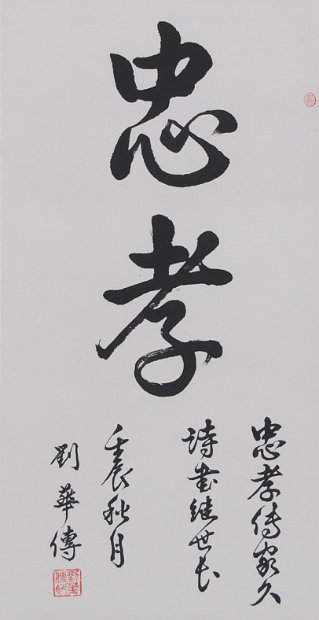 忠孝
忠孝傳家久
詩書繼世長
壬辰秋月
劉華傳